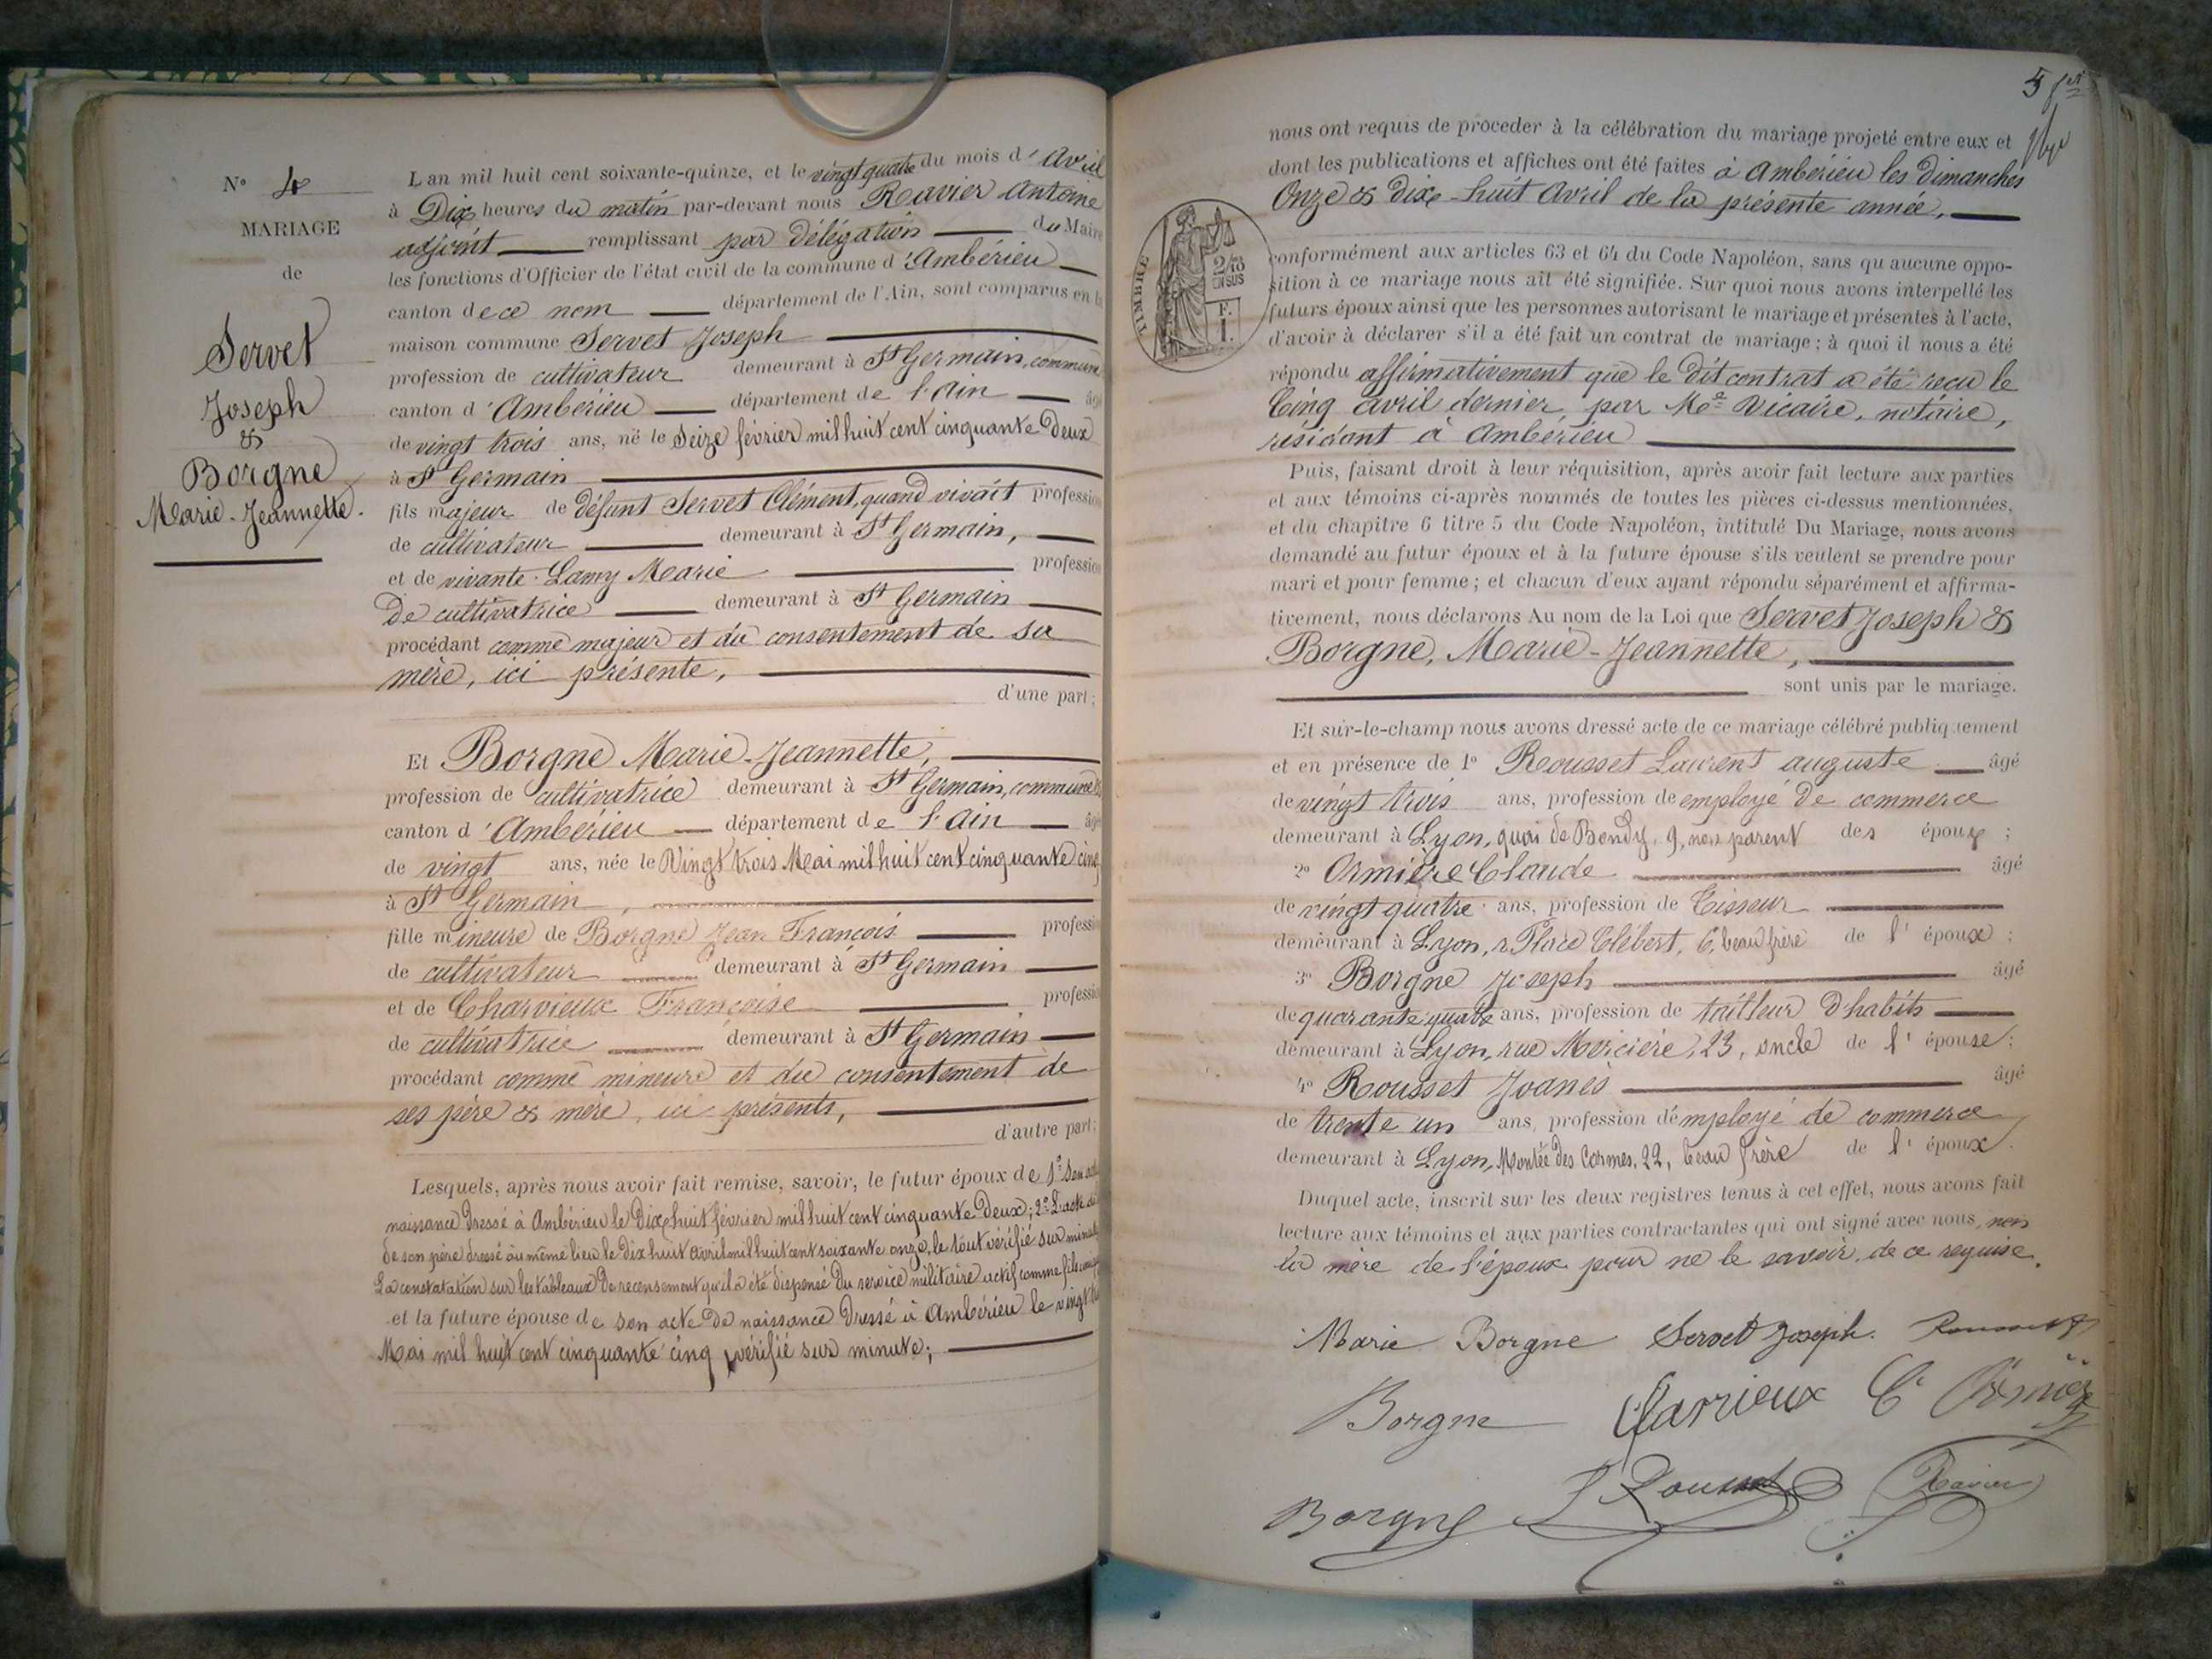 N° 4
MARIAGE
de
Servet
Joseph
&
Borgne
Marie-Jeannette.
L'an mil huit cent soixante-quinze, et le vingt quatre du mois d'Avril
à Dix heures du matin par-devant nous Ravier Antoine
adjoint remplissant par délégation du Maire
les fonctions d'Officier de l'état civil de la commune d'Ambérieu
canton de ce nom département de l'Ain, sont comparus en la
maison commune Servet Joseph
profession de cultivateur demeurant à St Germain, commune
canton d'Ambérieu département de l'Ain âgé
de vingt trois ans, né le Seize février mil huit cent cinquante Deux
à St Germain
fils majeur de défunt Servet Clément, quand vivait profession
de cultivateur demeurant à St Germain,
et de vivante Lamy Marie profession
De cultivatrice demeurant à St Germain
procédant comme majeur et du consentement de sa
mère, ici présente,
d'une part;
Et Borgne Marie-Jeannette,
profession de cultivatrice demeurant à St Germain, commune
canton d'Ambérieu département de l'Ain âgé
de vingt ans, née le Vingt trois Mai mil huit cent cinquante cinq
à St Germain,
fille mineure de Borgne Jean François profession
de cultivateur demeurant à St Germain
et de Charvieux Françoise profession
de cultivatrice demeurant à St Germain
procédant comme mineure et du consentement de
ses père & mère, ici présents,
d'autre part;
Lesquels, après nous avoir fait remise, savoir, le futur époux de 1° Son acte
naissance Dressé à Ambérieu le Dix huit février mil huit cent cinquante Deux; 2° L'acte de
de son père dressé au même lieu le dix huit avril mil huit cent soixante onze, le tout vérifié sur minute
La constatation sur les tableaux De recensement qu'il a été dispensé Du service militaire actif comme fils
et la future épouse de son acte De naissance Dressé à Ambérieu le vingt
Mai mil huit cent cinquante cinq vérifié sur minute;
5
nous ont requis de procéder à la célébration du mariage projeté entre eux et
dont les publications et affiches ont été faites à Ambérieu les dimanches
Onze & dix-huit Avril de la présente année,
TIMBRE
2/10
EN SUS
F.
1.
conformément aux articles 63 et 64 du Code Napoléon, sans qu'aucune oppo-
sition à ce mariage nous ait été signifiée. Sur quoi nous avons interpellé les
futurs époux ainsi que les personnes autorisant le mariage et présentes à l'acte,
d'avoir à déclarer s'il a été fait un contrat de mariage; à quoi il nous a été
répondu affirmativement que le Dit contrat a été reçu le
Cinq avril dernier, par Me Vicaire, notaire,
résidant à Ambérieu
Puis, faisant droit à leur réquisition, après avoir fait lecture aux parties
et aux témoins ci-après nommés de toutes les pièces ci-dessus mentionnées,
et du chapitre 6 titre 5 du Code Napoléon, intitulé Du Mariage, nous avons
demandé au futur époux et à la future épouse s'ils veulent se prendre pour
mari et pour femme; et chacun d'eux ayant répondu séparément et affirma-
tivement, nous déclarons Au nom de la Loi que Servet Joseph &
Borgne, Marie-Jeannette,
sont unis par le mariage.
Et sur-le-champ nous avons dressé acte de ce mariage célébré publiquement
et en présence de 1° Rousset Laurent auguste âgé
de vingt trois ans, profession de employé De commerce
demeurant à Lyon, quai de Bondy, 9, non parent des époux;
2° Ormière Claude âgé
de vingt quatre ans, profession de Tisseur
demeurant à Lyon, r. Place Clébert, 6, beau frère de l'époux;
3° Borgne Joseph âgé
de quarante quatre ans, profession de tailleur D'habits
demeurant à Lyon, rue Mercière, 23, oncle de l'épouse;
4° Rousset Joanès âgé
de trente un ans, profession d'employé de commerce
demeurant à Lyon, Montée des Carmes, 22, beau frère de l'époux.
Duquel acte, inscrit sur les deux registres tenus à cet effet, nous avons fait
lecture aux témoins et aux parties contractantes qui ont signé avec nous, non
la mère de l'époux pour ne le savoir, de ce requise.
Marie Borgne Servet Joseph. Rousset
Borgne Charvieux Ce Ormière
Borgne L Rousset Ravier